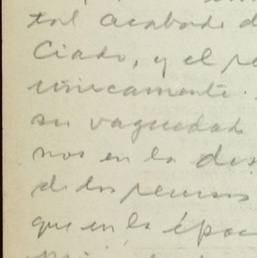 tal acabado d
ciado, y el pe
unicamente
su vaguedad
nos en la des
de dos
que en la époc